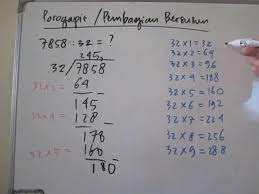 Porogapit / Pembagian Bersusun
7858 : 32 = ?
245
32 / 7858
32 x 2 = 64 -
145
32 x 4 = 128 -
178
32 x 5 = 160 -
180
32 x 1 = 32
32 x 2 = 64
32 x 3 = 96
32 x 4 = 128
32 x 5 = 160
32 x 6 = 192
32 x 7 = 224
32 x 8 = 256
32 x 9 = 288